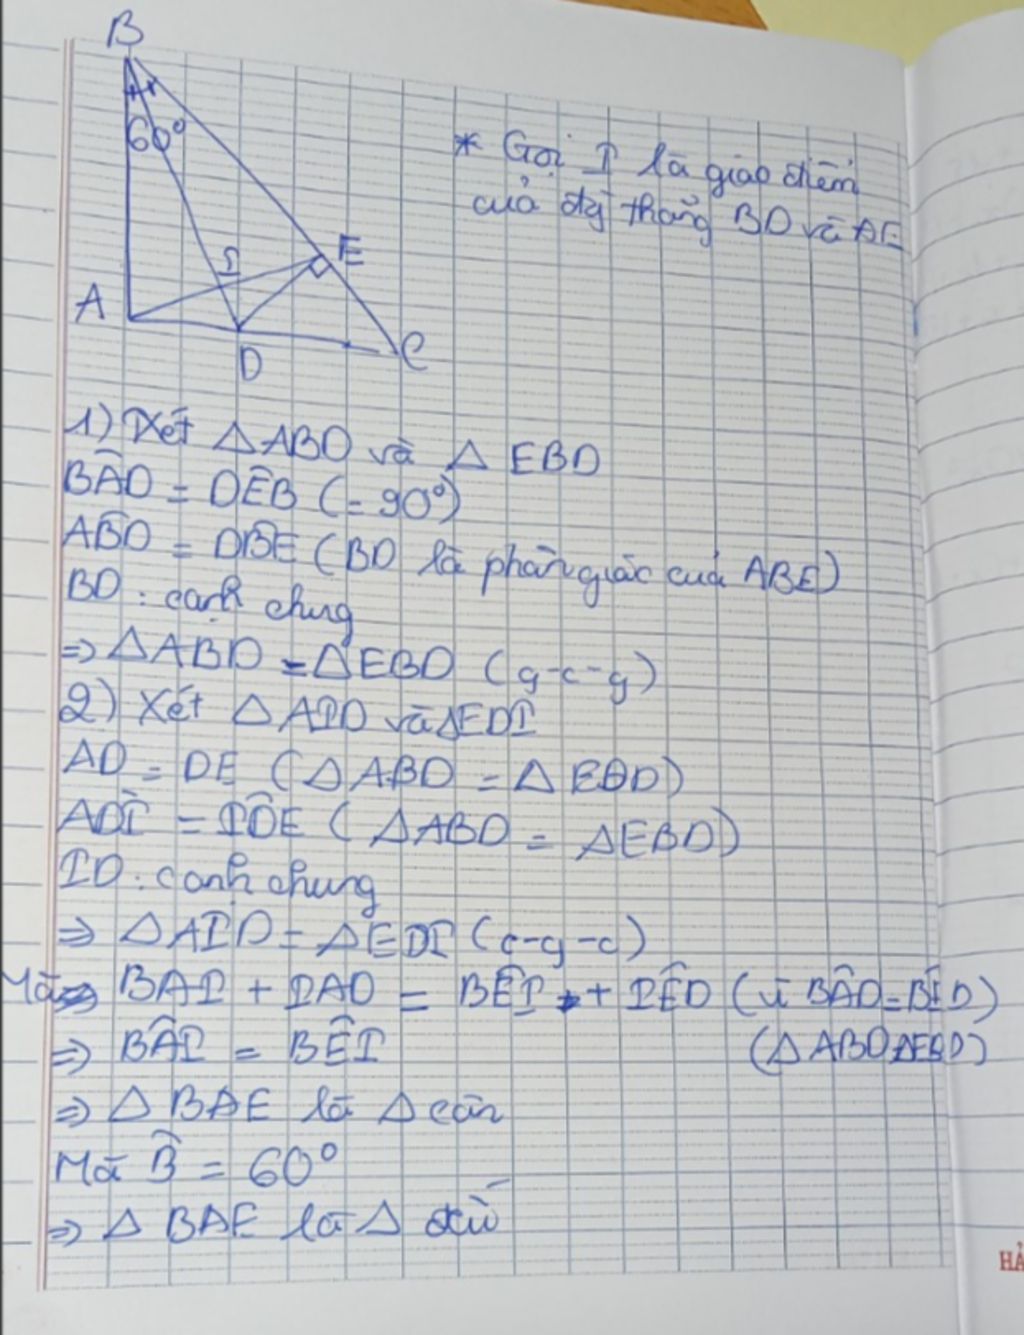 B
60°
* Gọi I là giao điểm
của đg thẳng BD và AE
I
E
A
D
C
1) Xét △ABD và △ EBD
BÂD = DÊB (= 90°)
AB̂D = DB̂E (BD là phân giác của ABE)
BD : cạnh chung
=> △ABD = △EBD (g-c-g)
2) Xét △ AID và △EDI
AD = DE (△ABD = △EBD)
AD̂I = ID̂E (△ABD = △EBD)
ID : cạnh chung
=> △AID = △EDI (c-g-c)
Mà BAI + IAD = BÊI + IÊD (vì BÂD = BÊD)
=> BÂI = BÊI (△ABD △EBD)
=> △ BAE là △ cân
Mà B̂ = 60°
=> △ BAE là △ đều
HẢ